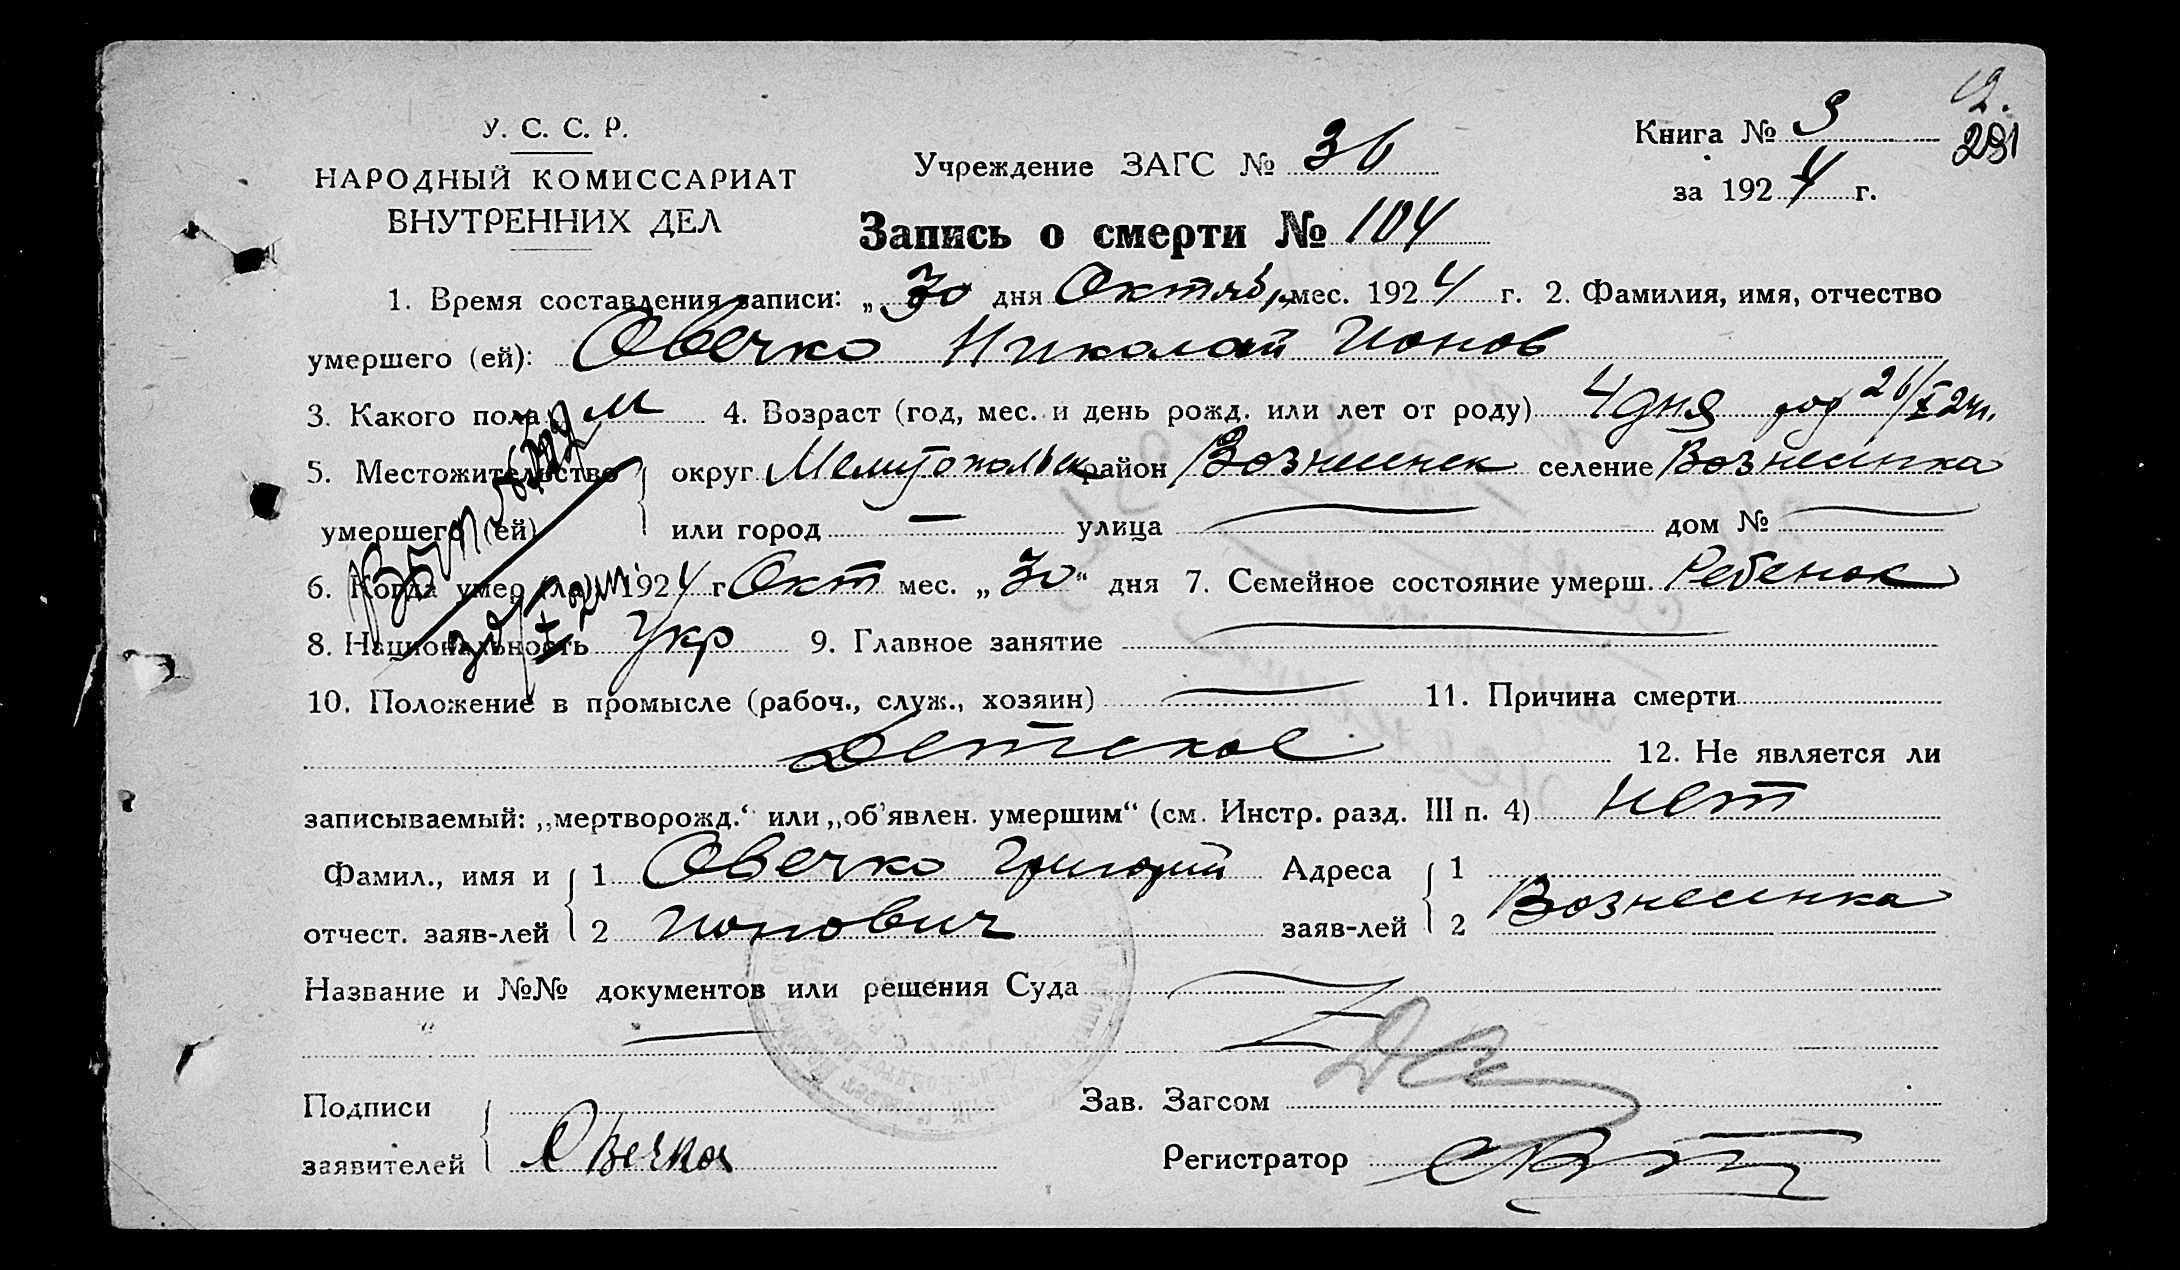 У. С. С. Р.
НАРОДНЫЙ КОМИССАРИАТ
ВНУТРЕННИХ ДЕЛ
Учреждение ЗАГС № 36
Книга № 3
за 1924 г.
291
Запись о смерти № 104
1. Время составления записи: „30 дня Октяб. мес. 1924 г. 2. Фамилия, имя, отчество
умершего (ей): Овечко Николай Ионов
3. Какого пола м 4. Возраст (год, мес. и день рожд. или лет от роду) 4 дня 26/X 24 г.
5. Местожительство округ Мелитопольск район Вознесенск селение Вознесенка
умершего (ей) или город — улица — дом № —
6. Когда умер (ла) 1924 г Окт мес. „30" дня 7. Семейное состояние умерш. Ребенок
8. Национальность Укр 9. Главное занятие —
10. Положение в промысле (рабоч., служ., хозяин) — 11. Причина смерти
Детское 12. Не является ли
записываемый: „мертворожд.“ или „об'явлен. умершим“ (см. Инстр. разд. III п. 4) нет
Фамил., имя и 1 Овечко Григорий Адреса 1
отчест. заяв-лей 2 Ионович заяв-лей 2 Вознесенка
Название и №№ документов или решения Суда
Подписи Зав. Загсом
заявителей Овечко Регистратор